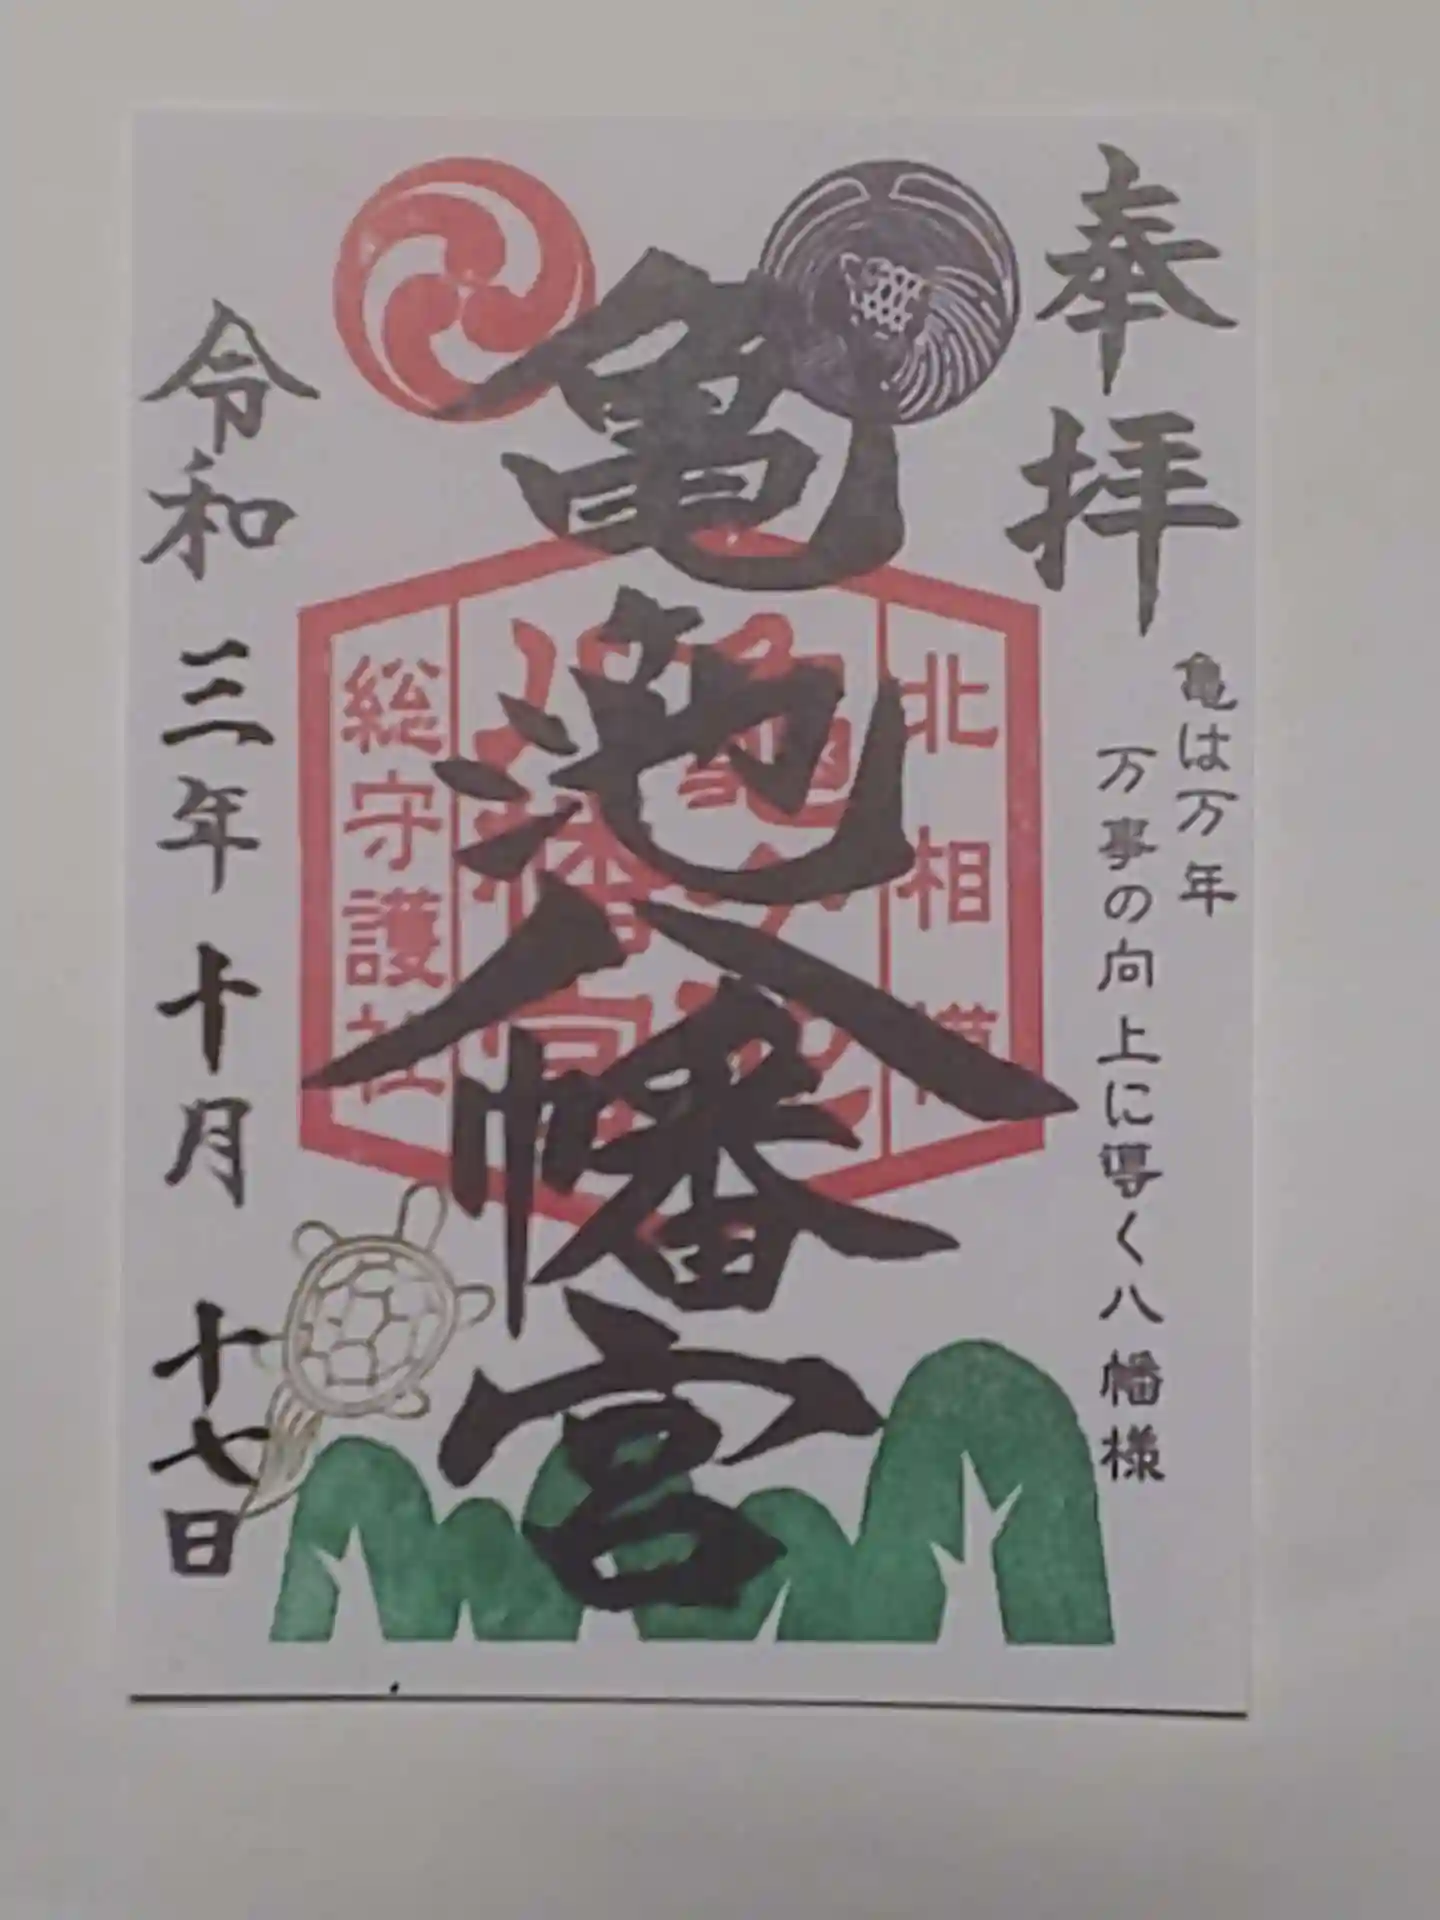 奉拝
亀は万年
万事の向上に導く八幡様
亀池八幡宮
北相模
亀ヶ池
八幡宮
総守護社
令和三年十月十七日